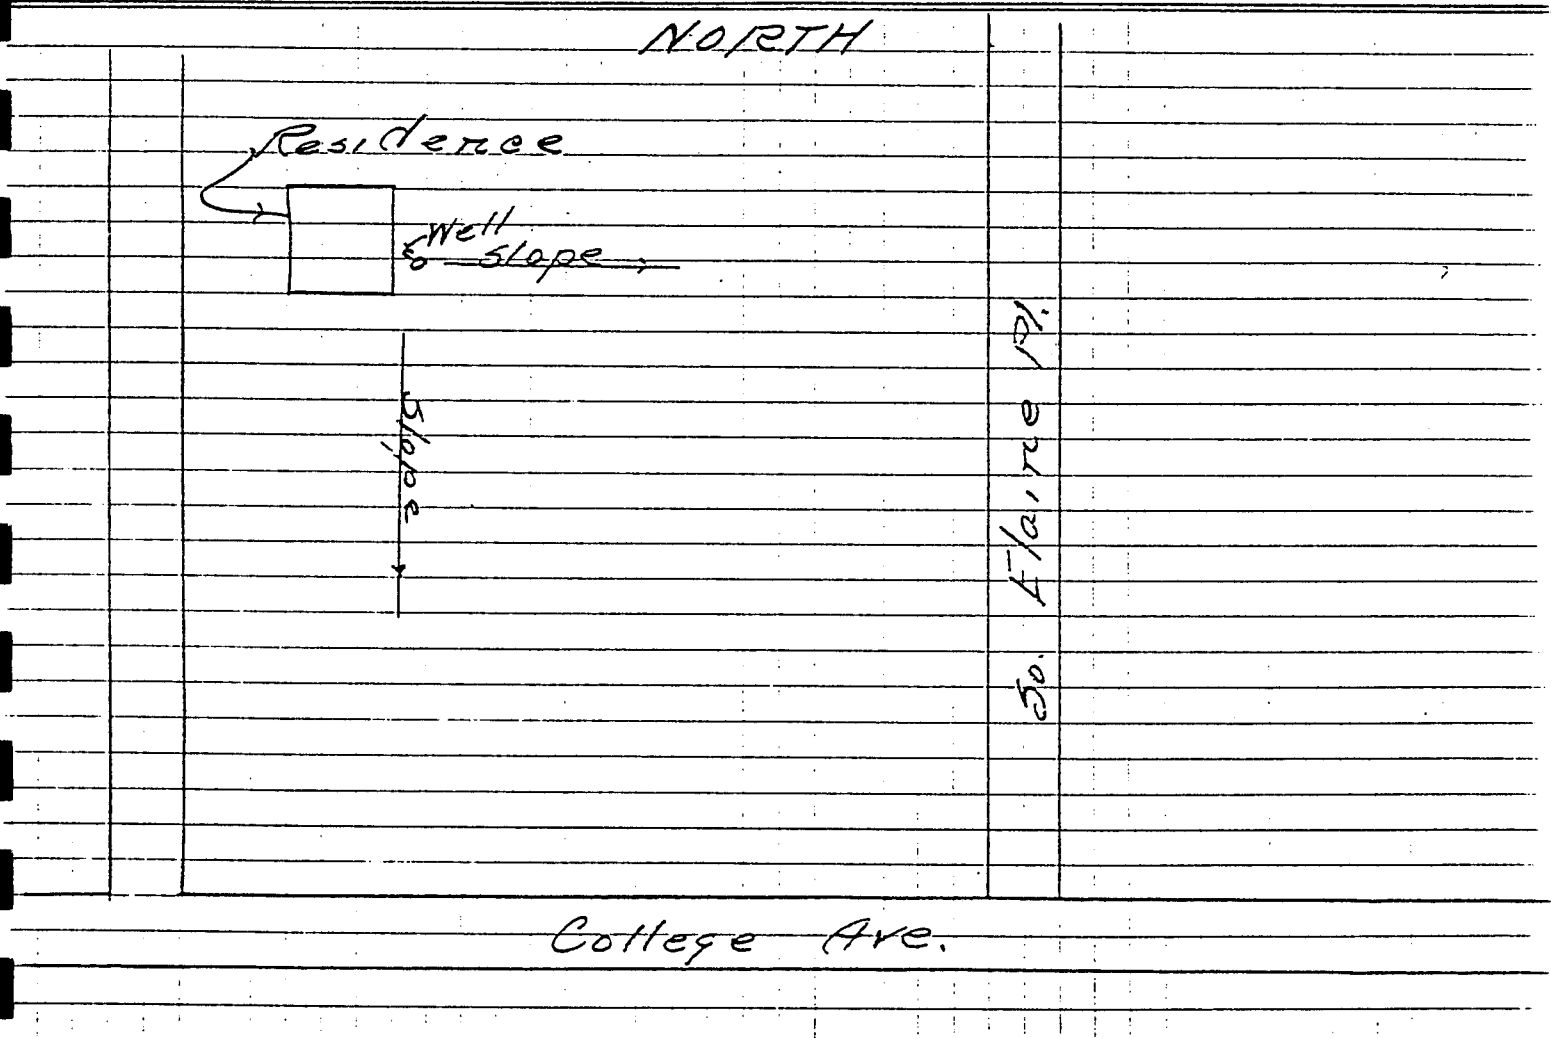 NORTH
Residence
Well
slope
Slope
So. Elaine Pl.
College Ave.